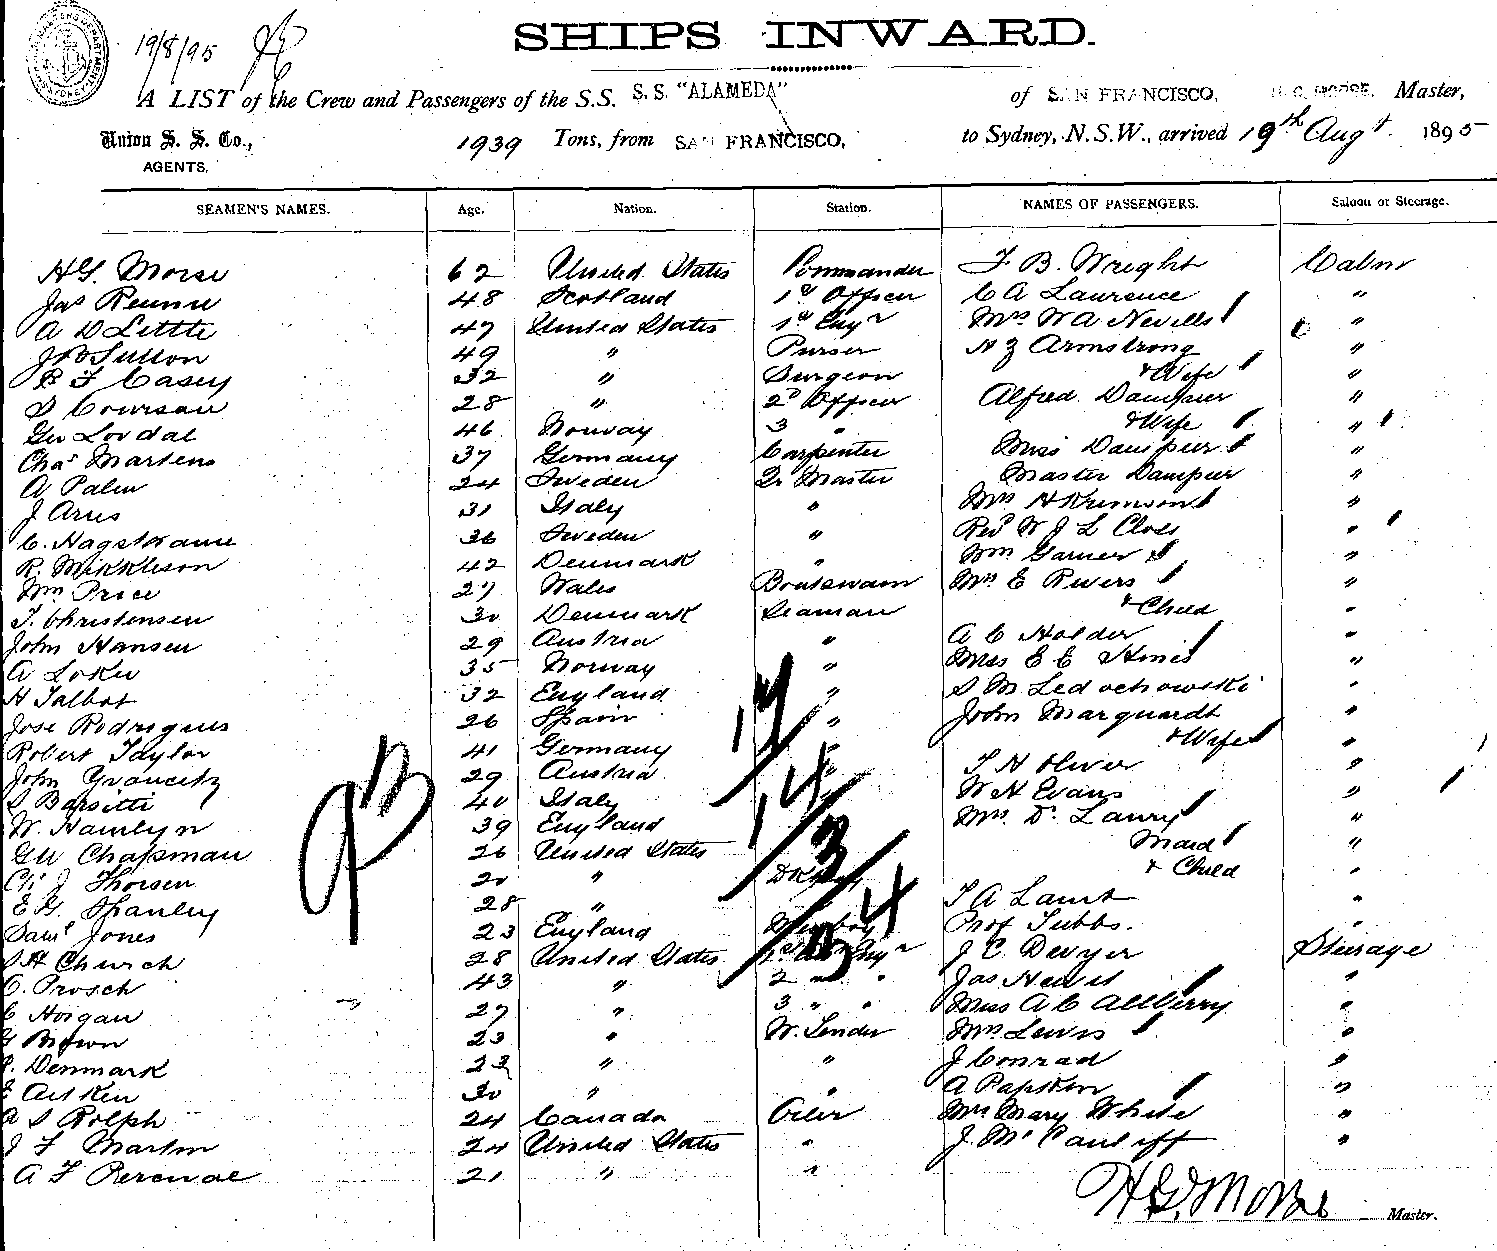 19/8/95
SHIPS INWARD.
A LIST of the Crew and Passengers of the S.S. S.S. "ALAMEDA" of SAN FRANCISCO, H. G. MORSE, Master,
Union S. S. Co., AGENTS. 1939 Tons, from SAN FRANCISCO, to Sydney, N.S.W., arrived 19th Augt. 1895
SEAMEN'S NAMES. Age. Nation. Station. NAMES OF PASSENGERS. Saloon or Steerage.
HG. Morse 62 United States Commander F. B. Wright Cabin
Jas Rennie 48 Scotland 1st Officer C A Laurence "
A D Little 47 United States 1st Engr Mrs W A Nevills "
Sutton 49 " Purser H Z Armstrong "
R F Casey 32 " Surgeon & Wife "
Courson 28 " 2d Officer Alfred Dampier "
Lordal 46 Norway 3 " & Wife "
Chas Martens 37 Germany Carpenter Miss Dampier "
A Palm 24 Sweden Qr Master Master Dampier "
J Arus 31 Italy " Mrs H "
C. Hagstrame 36 Sweden " Revd W J L Closs "
R. Mikkleson 42 Denmark " Wm Garner "
Wm Price 27 Wales Boatswain Mrs E Rivers "
T. Christensen 30 Denmark Seaman & Child "
John Hansen 29 Austria " A C Holder "
A 35 Norway " Miss E E Himes "
H Talbot 32 England " S M Ledochowski "
Jose Rodrigues 26 Spain " John Marquardt "
Robert Taylor 41 Germany " & Wife "
John 29 Austria " T H Oliver "
S Barsitti 40 Italy W H Evans "
W. Hamlyn 39 England Mrs. Dr. Laury "
GW Chapman 26 United States Maid "
J Thorsen 20 " & Child "
E G. Spanley 28 " T A Lamb "
Saml Jones 23 England Prof Tubbs. "
Church 28 United States J C Devyer Steerage
C. Prosch 43 " 2 " " Jas Hewit "
C Horgan 27 " 3 " " Miss A C Allberry "
Brown 23 " W. Tender Mrs Lewis "
Denmark 23 " " J Conrad "
Aitken 30 " " A Papskin "
A S Rolph 24 Canada Oiler Mrs Mary White "
J F Martin 24 United States " J. McCauliff "
A F Percival 21 " "
17
14
3
4
3
H.G. Morse Master.